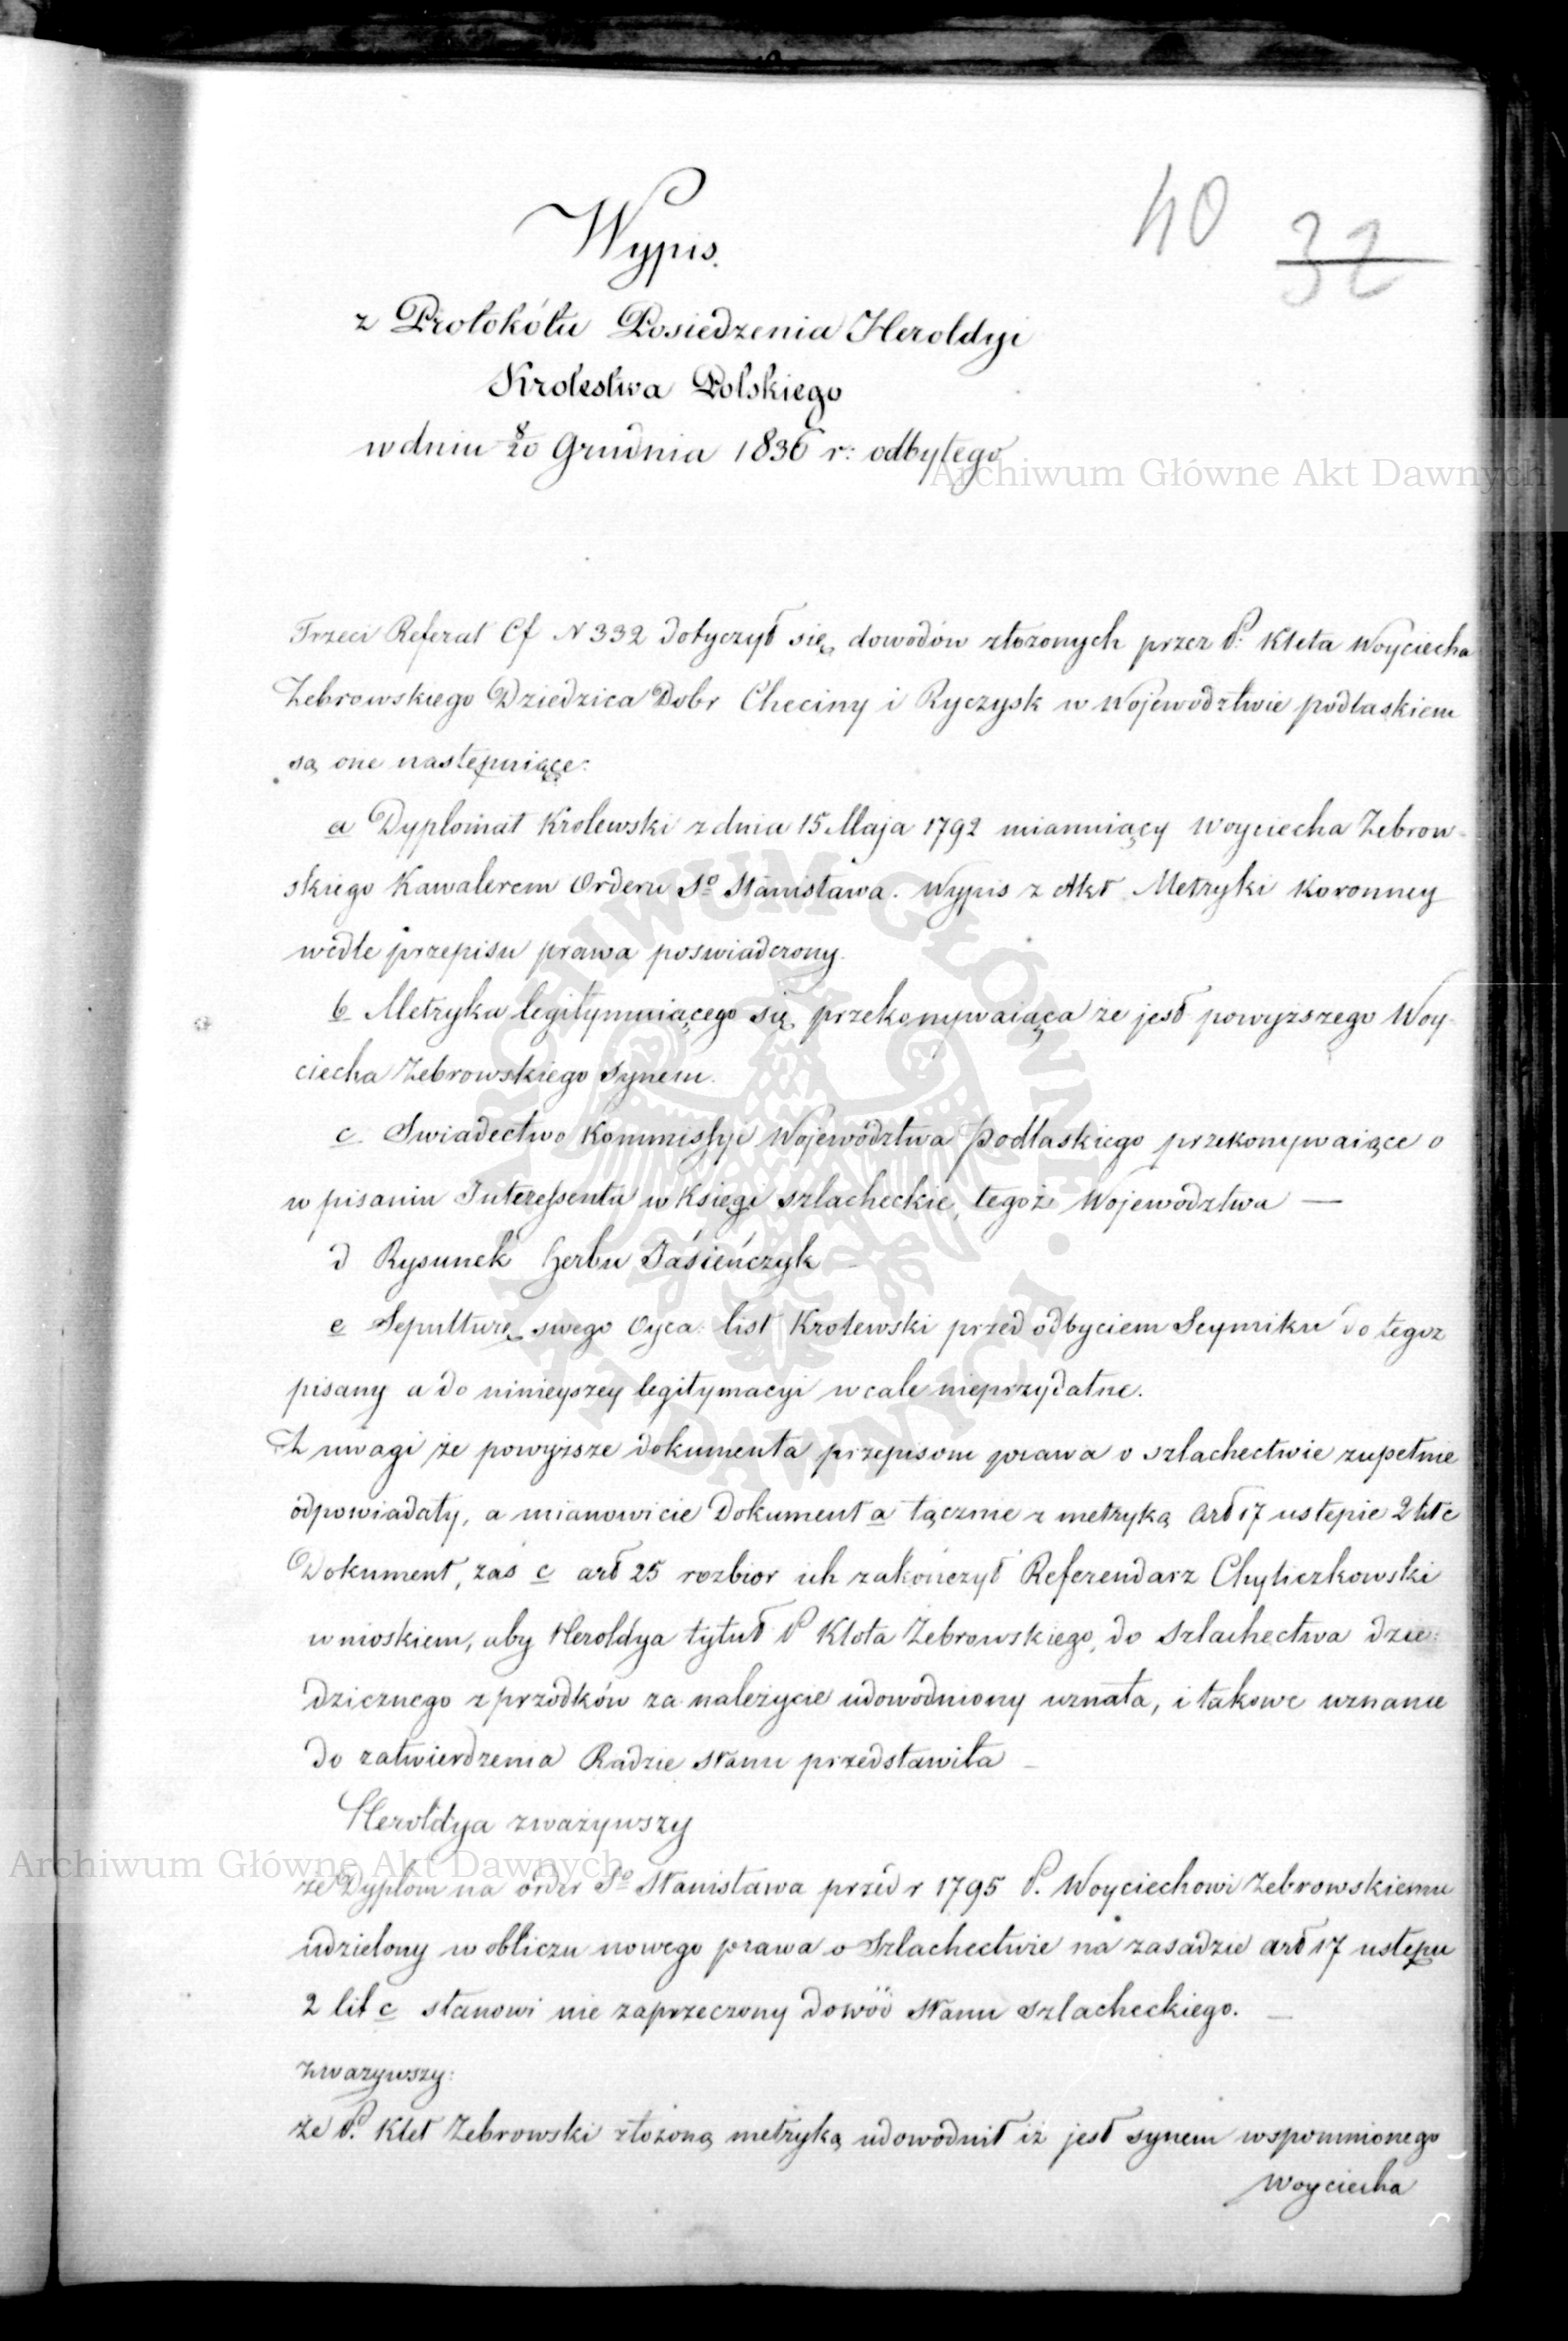 40 32
Wypis.
z Protokółu Posiedzenia Heroldyi
Krolestwa Polskiego
w dniu 8/20 Grudnia 1836 r: odbytego
Archiwum Główne Akt Dawnych
Trzeci Referat Cf N 332 dotyczył się dowodów złożonych przez P. Kleta Woyciecha
Zebrowskiego Dziedzica Dobr Checiny i Ryczysk w Wojewodztwie podlaskiem
są one następuiące:
a Dyplomat Krolewski z dnia 15 Maja 1792 mianuiący Woyciecha Zebrow-
skiego Kawalerem Orderu So Stanisława. Wypis z Akt Metryki Koronney
wedle przepisu prawa poswiadczony.
b Metryka legitymuiącego się przekonywaiąca że jest powyższego Woy-
ciecha Zebrowskiego Synem.
c. Swiadectwo Kommissyi Województwa Podlaskiego przekonywaiące o
wpisaniu Interessenta w Księgi szlacheckie tegoż Wojewodztwa —
d Rysunek Herbu Jasieńczyk —
e Sepulturę swego Oyca: list Krolewski przed odbyciem Seymiku do tegoz
pisany a do ninieyszey legitymacyi wcale nieprzydatne.
Z uwagi że powyższe dokumenta przepisom prawa o szlachectwie zupełnie
odpowiadały, a mianowicie Dokument a łącznie z metryką Art 17 ustepie 2 lit c
Dokument, zas c art 25 rozbior ich zakończył Referendarz Chyliczkowski
wnioskiem, aby Heroldya tytuł P Kleta Zebrowskiego, do Szlachectwa dzie:
dzicznego z przodków za należycie udowodniony uznała, i takowe uznanie
do zatwierdzenia Radzie Stanu przedstawiła —
Heroldya zważywszy
że Dyplom na order So Stanisława przed r 1795 P. Woyciechowi Zebrowskiemu
udzielony w obliczu nowego prawa o Szlachectwie na zasadzie art 17 ustępu
2 lit c stanowi nie zaprzeczony dowód Stanu Szlacheckiego. —
zważywszy:
że P. Klet Zebrowski złożoną metryką udowodnił iż jest synem wspomnionego
Woyciecha
Archiwum Główne Akt Dawnych
ARCHIWUM GŁÓWNE AKT DAWNYCH